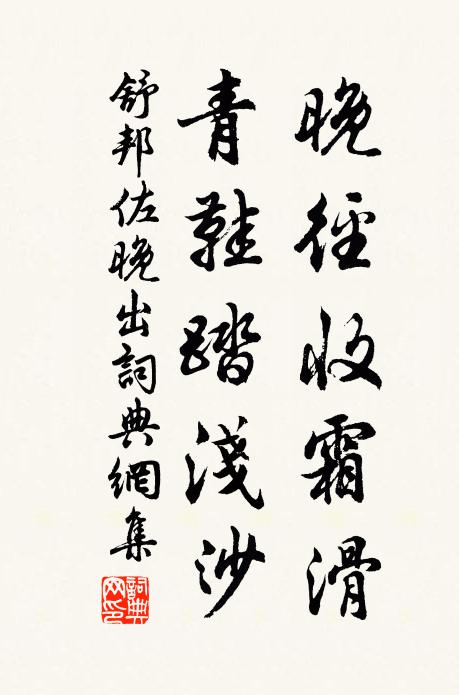 晚徑收霜滑
青鞋踏淺沙
舒邦佐晚出詞典網集
詞典網印